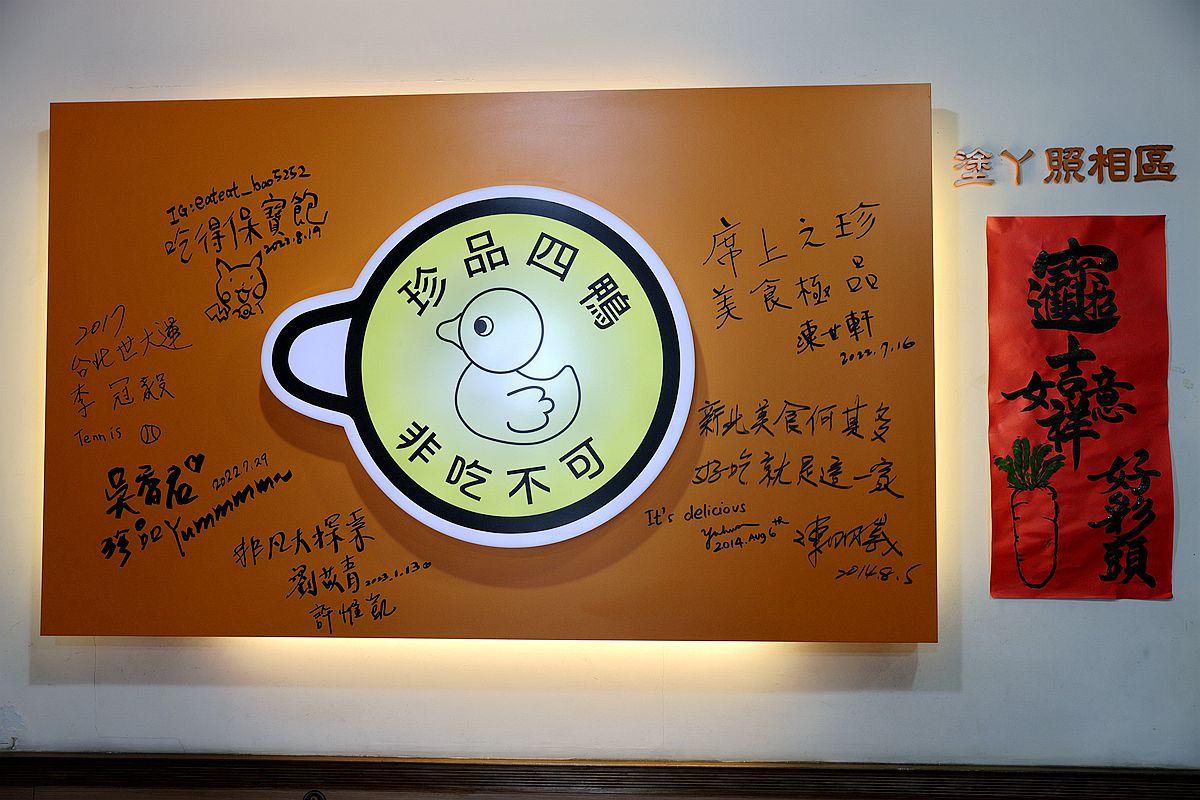 IG:eateat_bao5252
吃得保寶飽
2023.8.19
2017
台北世大運
李冠毅
Tennis
吳香君
2022.7.29
珍品Yummmmm
非凡大探索
劉苡青 2023.1.13
許惟凱
珍品四鴨
非吃不可
席上之珍
美食極品
陳世軒
2022.7.16
新北美食何其多
好吃就是這一家
It's delicious
2014.Aug 6th
2014.8.5
塗丫照相區
吉祥
如意
好彩頭